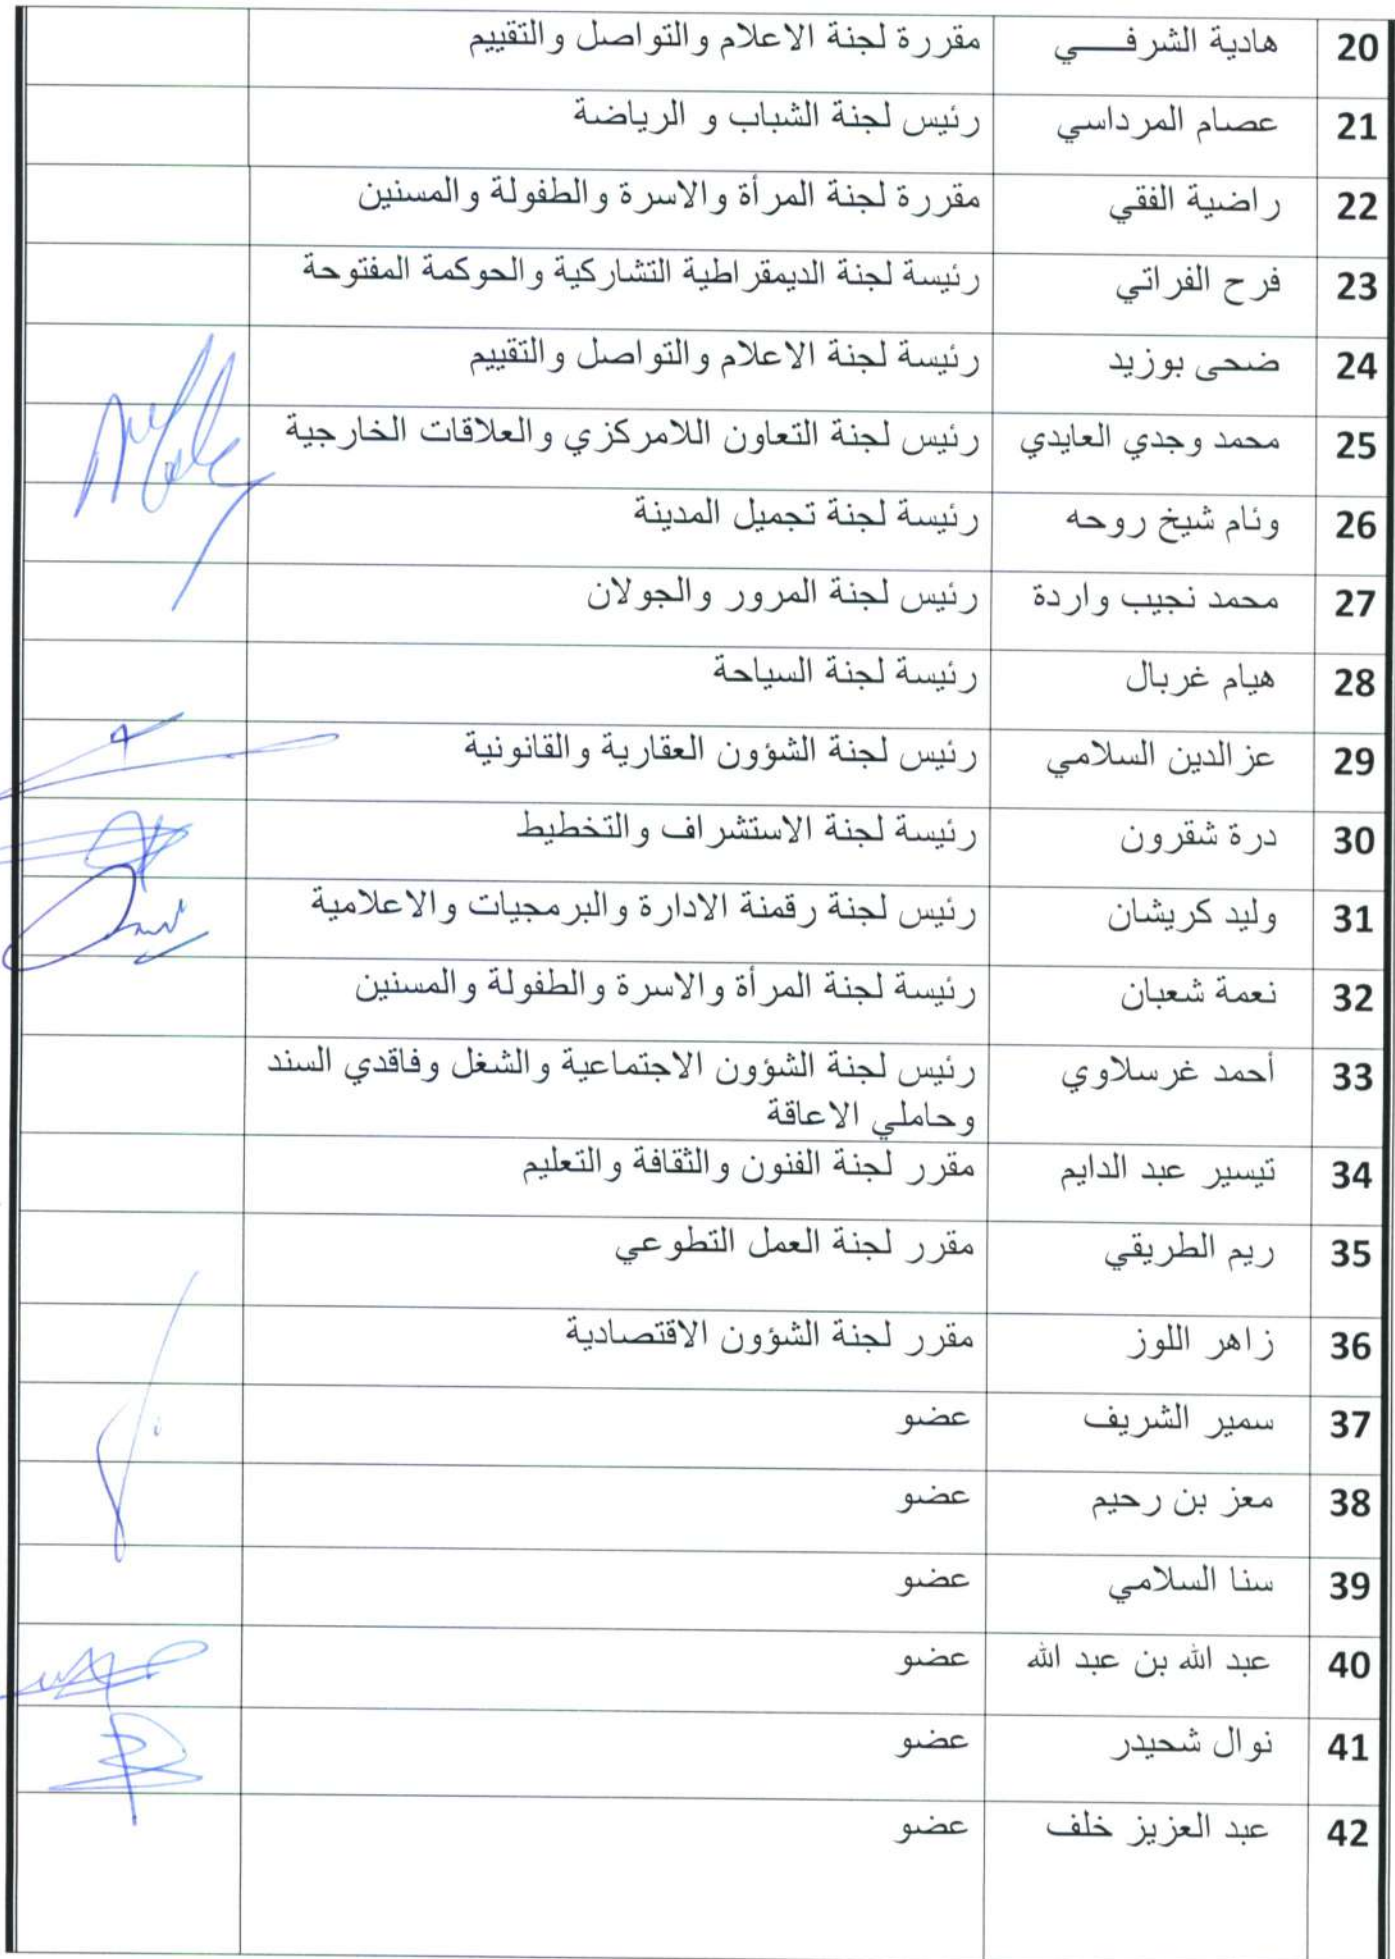 20 هادية الشرفـــي مقررة لجنة الاعلام والتواصل والتقييم
21 عصام المرداسي رئيس لجنة الشباب و الرياضة
22 راضية الفقي مقررة لجنة المرأة والاسرة والطفولة والمسنين
23 فرح الفراتي رئيسة لجنة الديمقراطية التشاركية والحوكمة المفتوحة
24 ضحى بوزيد رئيسة لجنة الاعلام والتواصل والتقييم
25 محمد وجدي العايدي رئيس لجنة التعاون اللامركزي والعلاقات الخارجية
26 وئام شيخ روحه رئيسة لجنة تجميل المدينة
27 محمد نجيب واردة رئيس لجنة المرور والجولان
28 هيام غربال رئيسة لجنة السياحة
29 عز الدين السلامي رئيس لجنة الشؤون العقارية والقانونية
30 درة شقرون رئيسة لجنة الاستشراف والتخطيط
31 وليد كريشان رئيس لجنة رقمنة الادارة والبرمجيات والاعلامية
32 نعمة شعبان رئيسة لجنة المرأة والاسرة والطفولة والمسنين
33 أحمد غرسلاوي رئيس لجنة الشؤون الاجتماعية والشغل وفاقدي السند
وحاملي الاعاقة
34 تيسير عبد الدايم مقرر لجنة الفنون والثقافة والتعليم
35 ريم الطريقي مقرر لجنة العمل التطوعي
36 زاهر اللوز مقرر لجنة الشؤون الاقتصادية
37 سمير الشريف عضو
38 معز بن رحيم عضو
39 سنا السلامي عضو
40 عبد الله بن عبد الله عضو
41 نوال شحيدر عضو
42 عبد العزيز خلف عضو